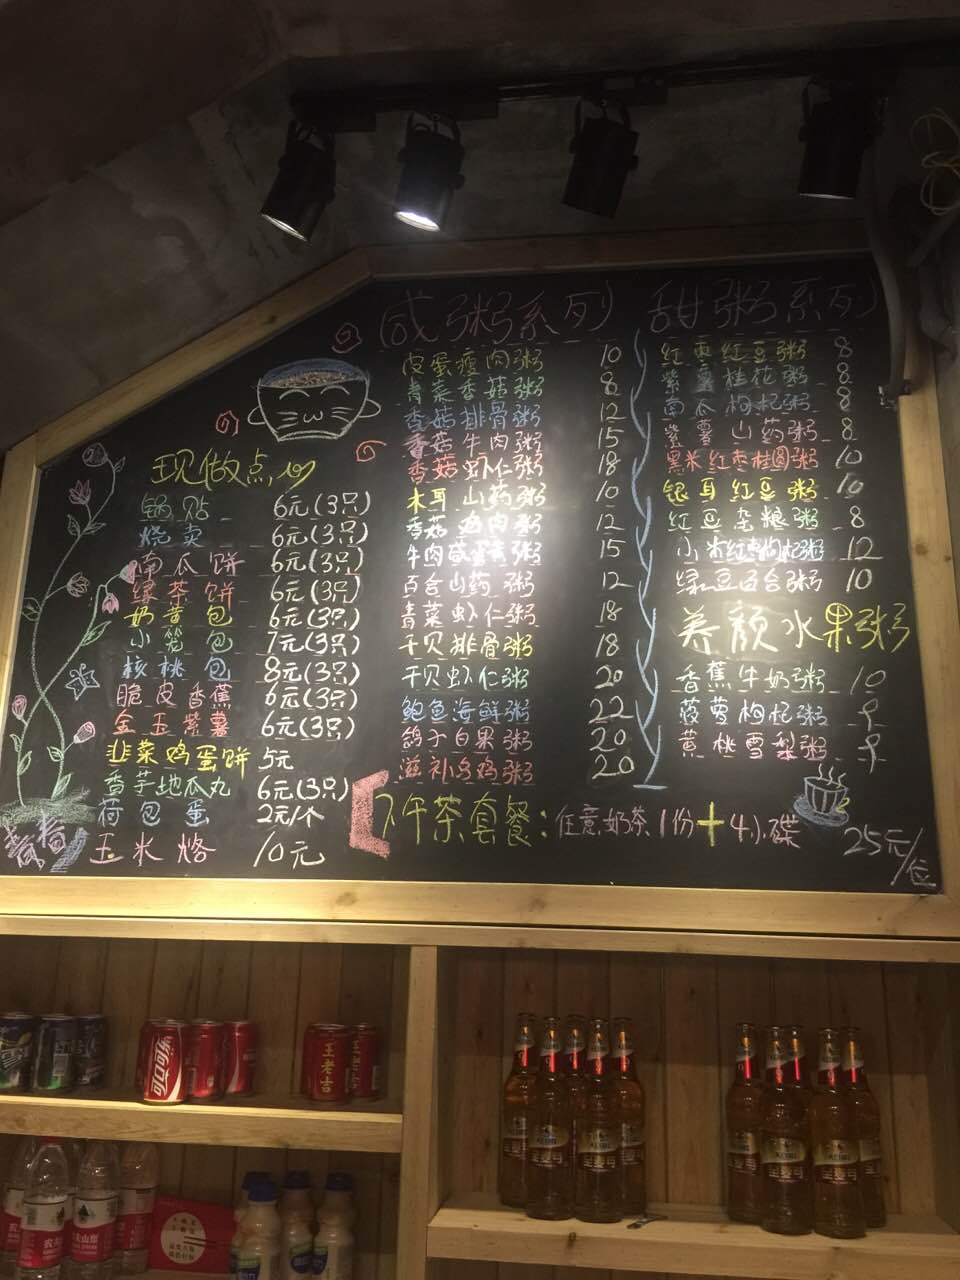 现做点心
锅贴 6元(3只)
烧卖 6元(3只)
南瓜饼 6元(3只)
绿茶饼 6元(3只)
奶黄包 6元(3只)
小笼包 7元(3只)
核桃包 8元(3只)
脆皮香蕉 6元(3只)
金玉紫薯 6元(3只)
韭菜鸡蛋饼 5元
香芋地瓜丸 6元(3只)
荷包蛋 2元/个
玉米烙 10元
咸粥系列
皮蛋瘦肉粥 10
青菜香菇粥 8
香菇排骨粥 12
香菇牛肉粥 15
香菇虾仁粥 18
木耳山药粥 10
香菇鸡肉粥 12
牛肉咸蛋黄粥 15
百合山药粥 12
青菜虾仁粥 18
干贝排骨粥 18
干贝虾仁粥 20
鲍鱼海鲜粥 22
鸽子白果粥 20
滋补乌鸡粥 20
甜粥系列
红枣红豆粥 8
紫薯桂花粥 8
南瓜枸杞粥 8
紫薯山药粥 8
黑米红枣桂圆粥 10
银耳红豆粥 10
红豆杂粮粥 8
小米红枣枸杞粥 12
绿豆百合粥 10
养颜水果粥
香蕉牛奶粥 10
菠萝枸杞粥 9
黄桃雪梨粥 9
下午茶套餐：任意奶茶1份+4小碟 25元/位
王老吉